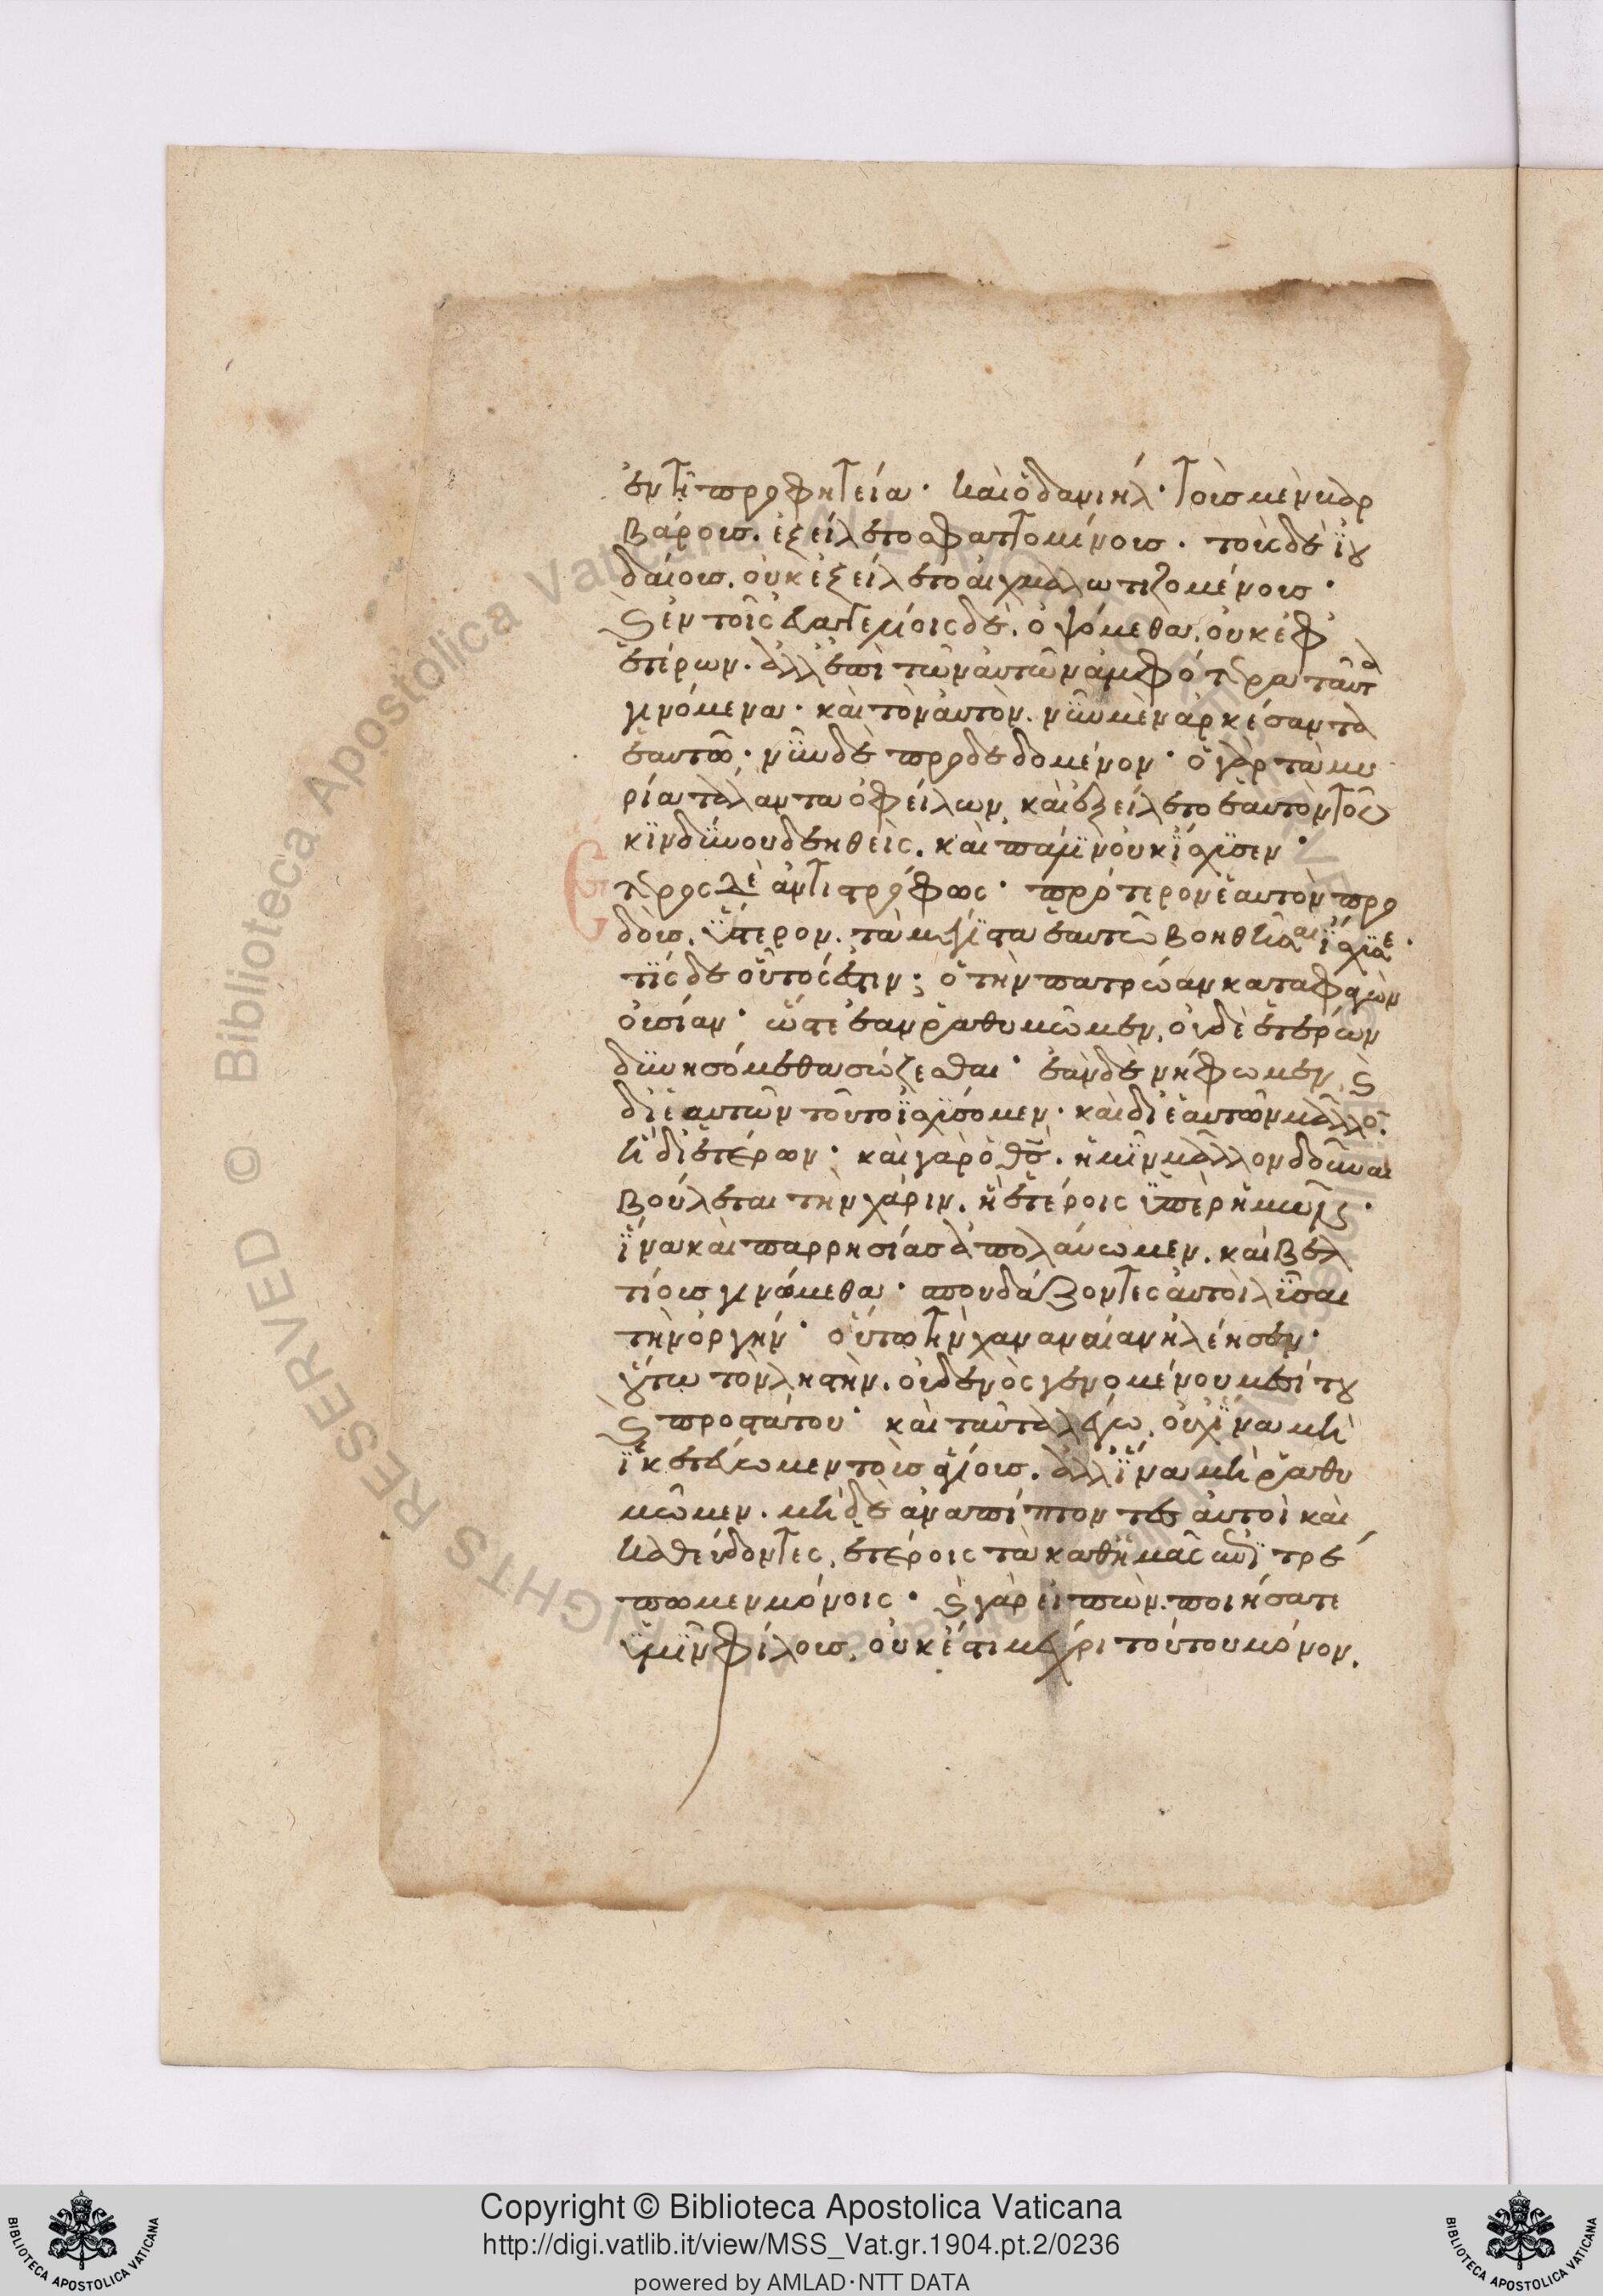 ἐν τῆ προφητεία· καὶ ὁ δανιὴλ· τοῖσ μὲν βαρ
βάροισ. ἐξείλετο σφαττομένοισ. τοὺς δὲ ϊου
δαίοισ. οὐκ ἐξείλετο αἰχμαλωτιζομένοισ·
καὶ ἐν τοῖς εὐαγγελίοις δὲ. ὀψόμεθα. οὐκ ἐφ
ἑτέρων. ἀλλ ἐπὶ τῶν αὐτῶν ἀμφότερα ταῦτα
γινόμενα· καὶ τὸν αὐτὸν. νῦν μὲν ἀρκέσαντα
ἑαυτῶ· νῦν δὲ προδεδομένον· ὁ γὰρ τὰ μυ
ρία τάλαντα ὀφείλων. καὶ ἐξείλετο ἑαυτὸν τοῦ
κϊνδύνου δεηθεὶς. καὶ πάλϊν οὐκ ϊσχυσεν·
Ετερος δὲ ἀντιστρόφως· πρότερον ἑαυτὸν προ
δοὺσ. ὕστερον. τὰ μέγϊστα ἑαυτῶ βοηθῆσαι ϊσχυσε·
τὶς δὲ οὗτός ἐστιν; ὁ τὴν πατρώαν καταφαγὼν
οὐσίαν· ὥστε ἐὰν ῥαθυμῶμεν. οὐδὲ ἑτέρων
δυνησόμεθα σώζεσθαι· ἐὰν δὲ νήφωμεν. καὶ
δι ἑαυτῶν τοῦτο ϊσχύσομεν· καὶ δι ἑαυτῶν μᾶλλον.
ἢ δι ἑτέρων· καὶ γὰρ ὁ θς. ἡμῖν μᾶλλον δοῦναι
βούλεται τὴν χάριν. ἢ ἑτέροις ὑπὲρ ἡμῶν·
ϊνα καὶ παρρησίασ ἀπολαύωμεν. καὶ βελ
τίουσ γινώμεθα· σπουδάζοντες αὐτοὶ λῦσαι
τὴν ὀργήν· οὕτω τὴν χαναναίαν ἠλέησεν·
οὕτω τὸν ληστὴν. οὐδενὸς γενομένου μεσίτου
καὶ προστάτου· καὶ ταῦτα λέγω. οὐχ ϊνα μὴ
ϊκετεύωμεν τοὺσ ἁγίουσ. ἀλλ ϊνα μὴ ῥαθυ
μῶμεν. μὴ δὲ ἀναπίπτοντεσ αὐτοὶ καὶ
καθεύδοντες. ἑτέροις τὰ καθ ἡμᾶς ἐπϊτρέ
πωμεν μόνοις· καὶ γὰρ εἰπὼν. ποιήσατε
ὑμῖν φίλουσ. οὐκ ἔστι μέχρι τούτου μόνον.
Copyright © Biblioteca Apostolica Vaticana
http://digi.vatlib.it/view/MSS_Vat.gr.1904.pt.2/0236
powered by AMLAD·NTT DATA